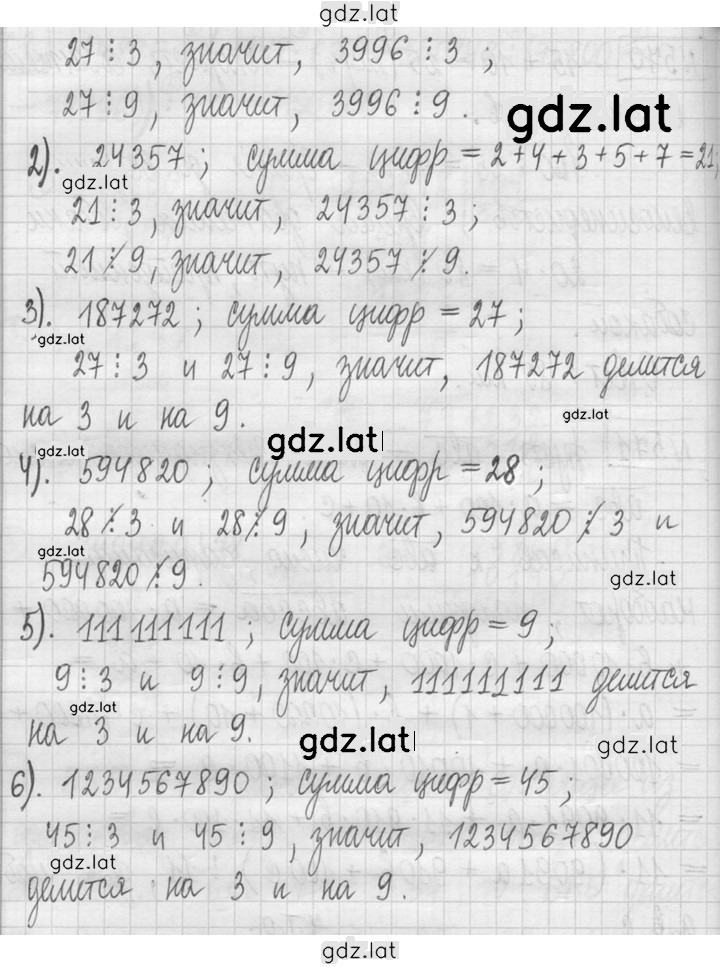 gdz.lat
27⋮3, значит, 3996⋮3;
27⋮9, значит, 3996⋮9.
gdz.lat
2). 24357; сумма цифр = 2+4+3+5+7=21;
gdz.lat
21⋮3, значит, 24357⋮3;
21⋮̸9, значит, 24357⋮̸9.
3). 187272; сумма цифр = 27;
gdz.lat
27⋮3 и 27⋮9, значит, 187272 делится
на 3 и на 9.
gdz.lat
gdz.lat
4). 594820; сумма цифр = 28;
28⋮̸3 и 28⋮̸9, значит, 594820⋮̸3 и
gdz.lat
594820⋮̸9.
gdz.lat
5). 111111111; сумма цифр = 9;
9⋮3 и 9⋮9, значит, 111111111 делится
gdz.lat
на 3 и на 9.
gdz.lat
gdz.lat
6). 1234567890; сумма цифр = 45;
45⋮3 и 45⋮9, значит, 1234567890
gdz.lat
делится на 3 и на 9.
gdz.lat